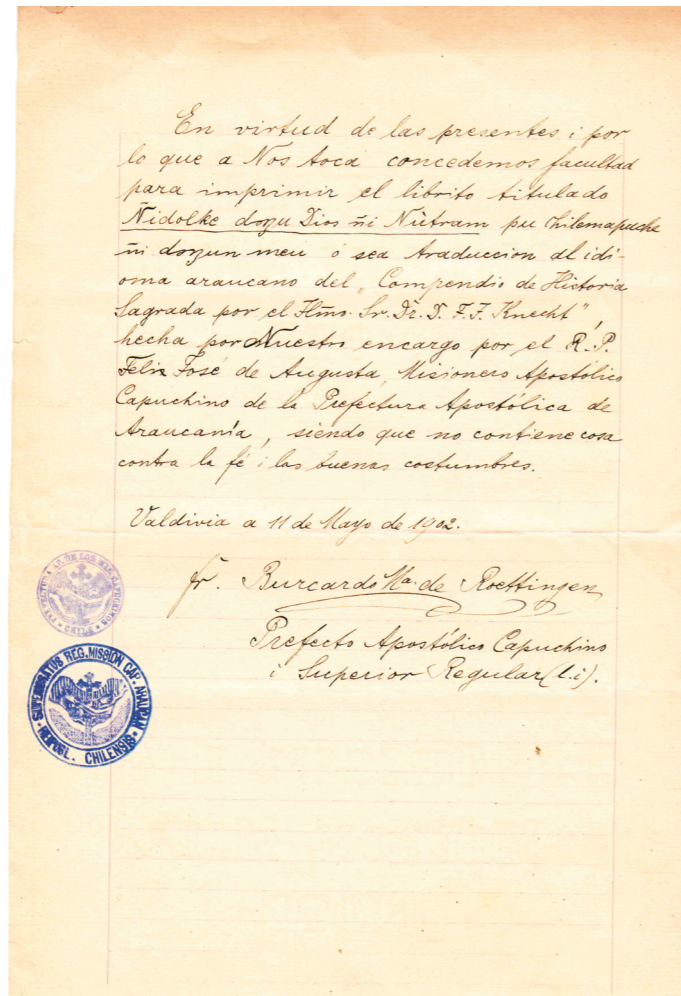 En virtud de las presentes i por
lo que a Nos toca concedemos facultad
para imprimir el librito titulado
Ñidolke dəŋu Dios ñi Nütram pu Chilemapuche
ñi dəŋun meu ó sea traduccion al idi-
oma araucano del „Compendio de Historia
Sagrada por el Iltmo. Sr. Dr. D. F. J. Knecht”,
hecha por Nuestro encargo por el R. P.
Felix José de Augusta, Misionero Apostólico
Capuchino de la Prefectura Apostólica de
Araucanía, siendo que no contiene cosa
contra la fé i las buenas costumbres.
Valdivia a 11 de Mayo de 1902.
fr. Burcardo Ma. de Roettingen
Prefecto Apostólico Capuchino
i Superior Regular (l. i).
PREFECTURA AP. DE LOS MIS. CAPUCHINOS
CHILE
SUPERIORATUS REG. MISSION CAP. ARAUCAN
REIPUBL. CHILENSIS